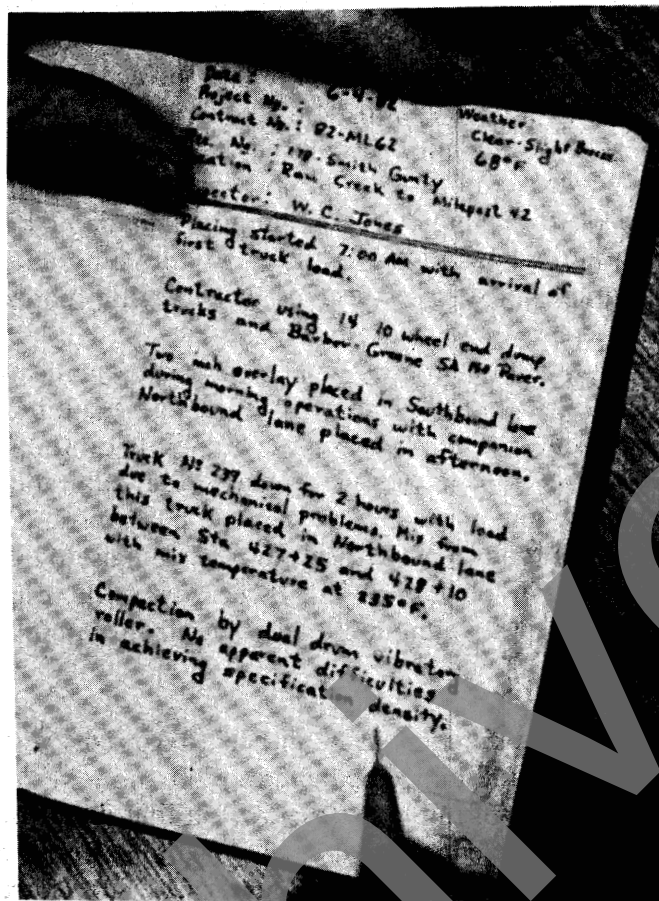 Date : 6-4-82
Project No. :
Contract No. : 82-ML62
No. : 178 - Smith County
Location : Ram Creek to Milepost 42
Inspector : W. C. Jones
Weather:
Clear - Slight Breeze
68°F
Placing started 7:00 AM with arrival of
first truck load.
Contractor using 14 10 wheel end dump
trucks and Barber-Greene SA 150 Paver.
Two inch overlay placed in Southbound lane
during morning operations with companion
Northbound lane placed in afternoon.
Truck No 237 down for 2 hours with load
due to mechanical problems. Mix from
this truck placed in Northbound lane
between Sta 427+25 and 428+10
with mix temperature at 235°F.
Compaction by dual drum vibratory
roller. No apparent difficulties
in achieving specification density.